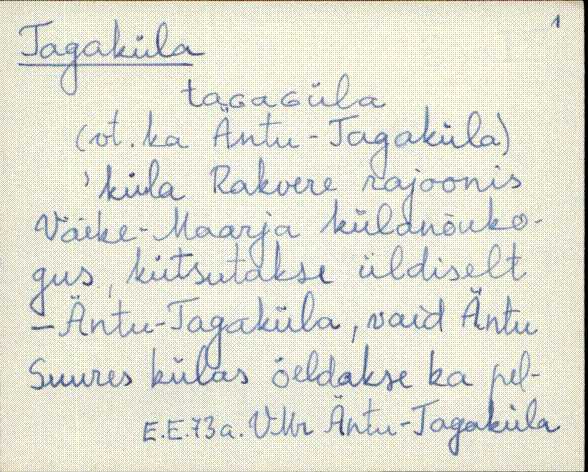 1
Tagaküla
taGaGüla
(vt. ka Äntu-Tagaküla)
'küla Rakvere rajoonis
Väike-Maarja külanõuko-
gus, kutsutakse üldiselt
-Äntu-Tagaküla, vaid Äntu
Suures külas öeldakse ka pel-
E.E.73a. VMr Äntu-Tagaküla